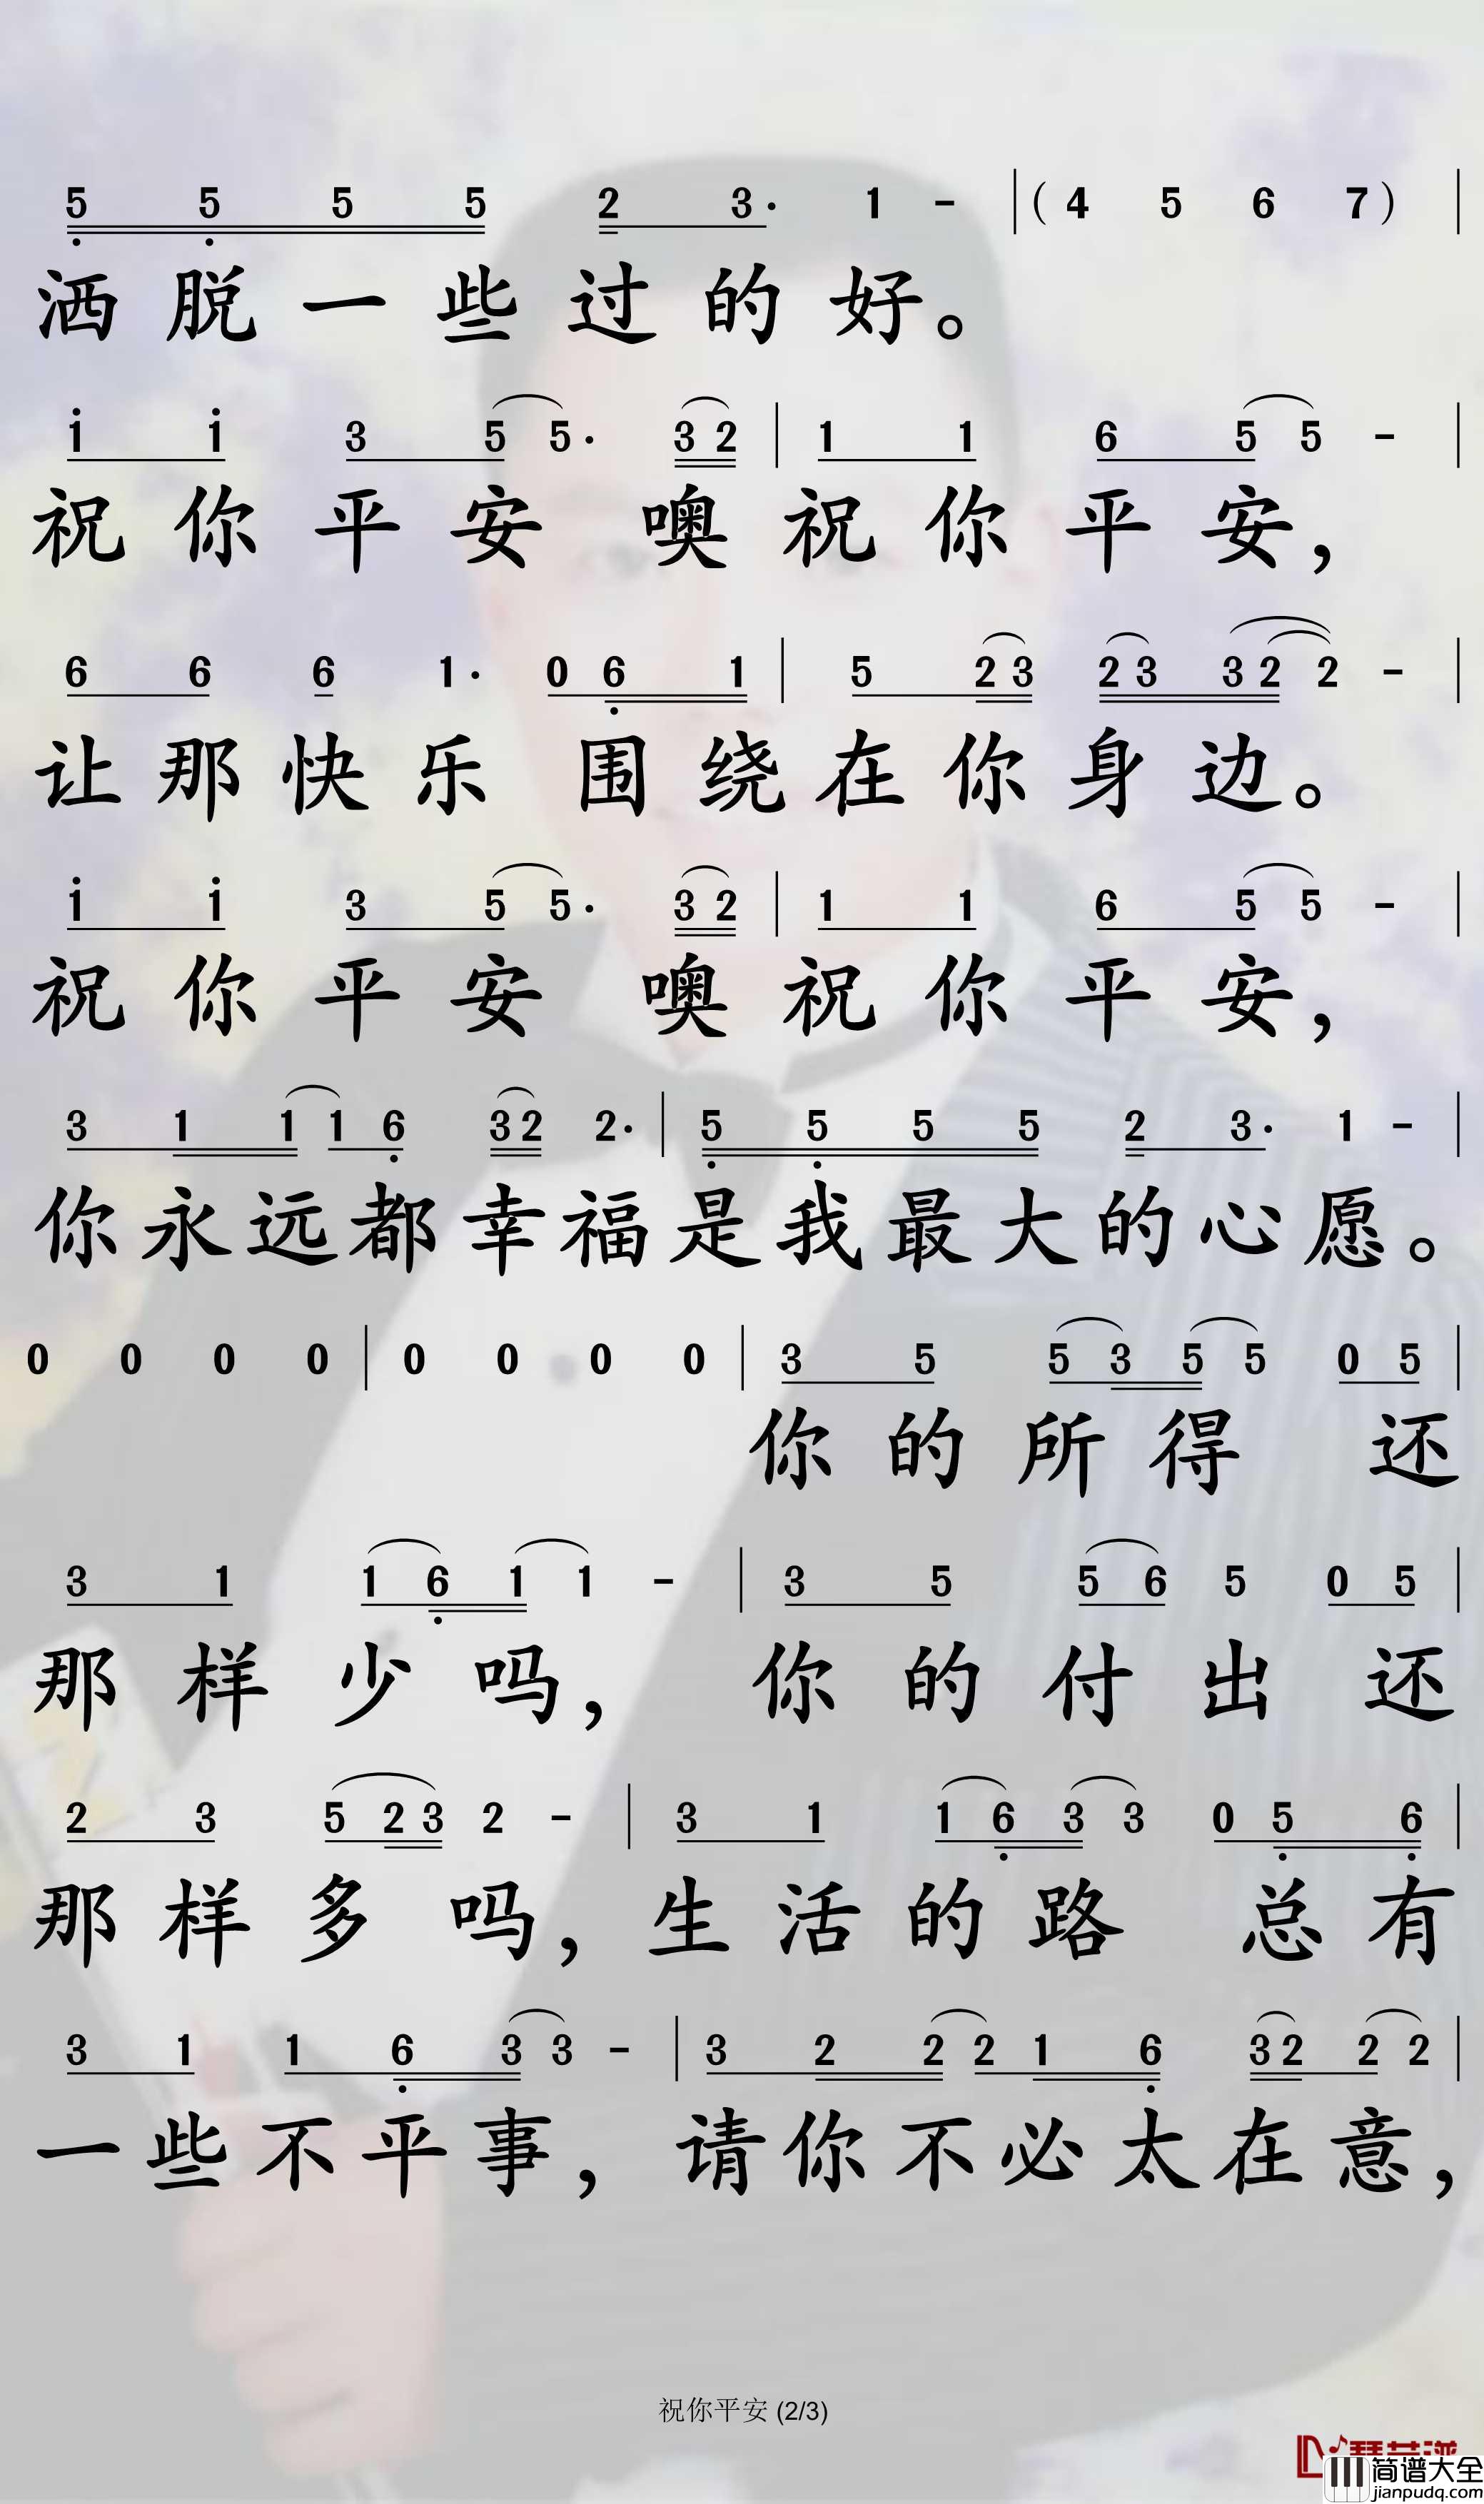 5 5 5 5 2 3· 1 - |( 4 5 6 7 ) |
洒脱一些过的好。
1 1 3 5 5· 3 2 | 1 1 6 5 5 - |
祝你平安 噢祝你平安，
6 6 6 1· 0 6 1 | 5 2 3 2 3 3 2 2 - |
让那快乐 围绕在你身边。
1 1 3 5 5· 3 2 | 1 1 6 5 5 - |
祝你平安 噢祝你平安，
3 1 1 1 6 3 2 2· | 5 5 5 5 2 3· 1 - |
你永远都幸福是我最大的心愿。
0 0 0 0 | 0 0 0 0 | 3 5 5 3 5 5 0 5 |
你的所得 还
3 1 1 6 1 1 - | 3 5 5 6 5 0 5 |
那样少吗， 你的付出 还
2 3 5 2 3 2 - | 3 1 1 6 3 3 0 5 6 |
那样多吗，生活的路 总有
3 1 1 6 3 3 - | 3 2 2 2 1 6 3 2 2 2 |
一些不平事，请你不必太在意，
祝你平安 (2/3)
简谱大全
jianpudq.com